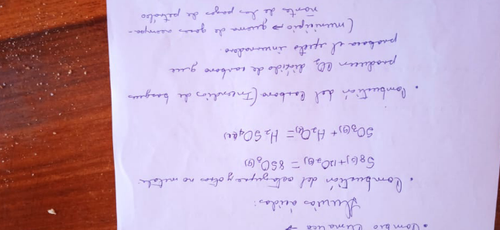 • Cambio climático →
Lluvias ácidas:
• Combustión del azufre y otros no metales
S8(s) + 12O2(g) = 8SO3(g)
SO3(g) + H2O(l) = H2SO4(ac)
• Combustión del carbono (Incendios de bosques
producen CO2 dióxido de carbono que
produce el efecto invernadero
(municipio → quema de gas
norte de los pozos de petróleo